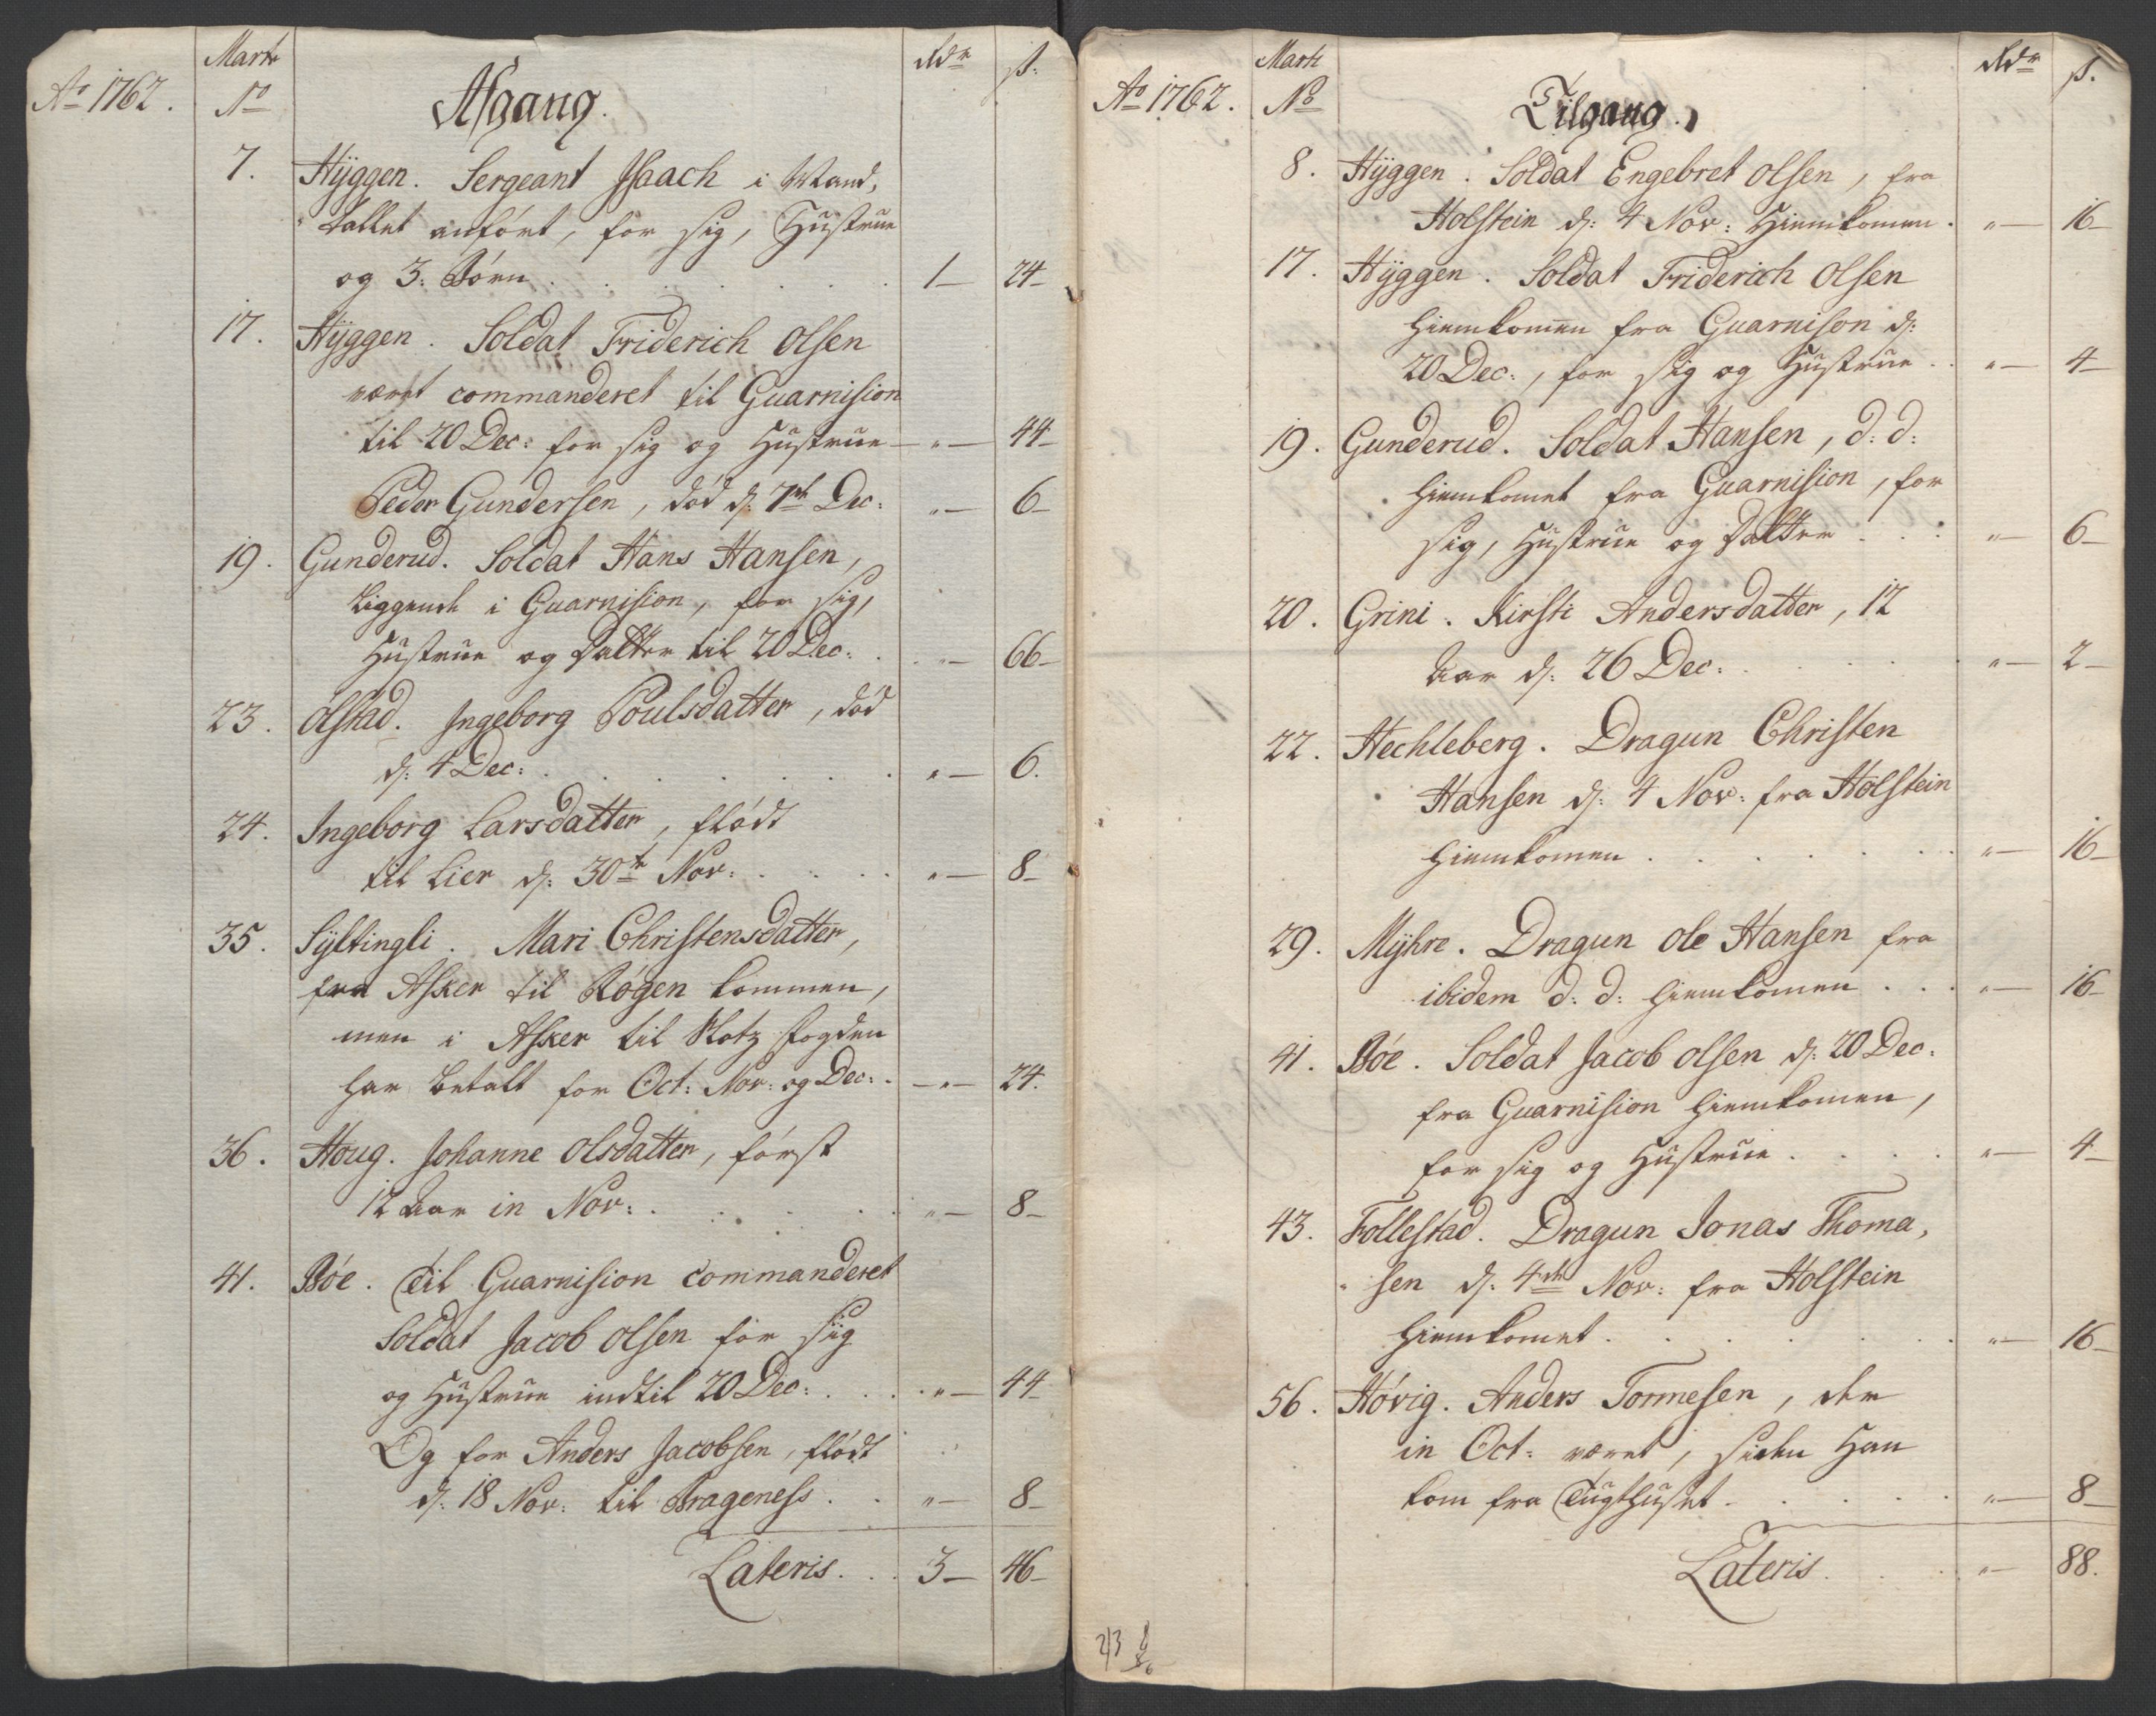 Ao 1762.
Matr
No
Afgang.
Rdr
ß.
7. Hÿggen. Sergeant Isaach i Mand,
tallet anført, for sig, Hustrue
og 3: Børn . . . . . . 1 — 24 —
17. Hÿggen. Soldat Friderich Olsen
været commanderet til Guarnision
til 20 Dec: for sig og Hustrue — „ — 44 —
Peder Gundersen, død d: 7de Dec: „ — 6 —
19. Gunderud. Soldat Hans Hansen,
liggende i Guarnision, for sig,
Hustrue og Datter til 20 Dec: . . „ — 66 —
23. Olstad. Ingeborg Poulsdatter, død
d: 4 Dec: . . . . . . . „ — 6.
24. Ingeborg Larsdatter, flødt
til Lier d: 30te Nov: . . . . „ — 8 —
35. Sÿltingli. Mari Christensdatter,
fra Asker til Røgen kommen,
men i Asker til Slotz fogden
har betalt for Oct: Nov: og Dec: . — „ — 24.
36. Houg. Johanne Olsdatter, først
12 Aar in Nov: . . . . . „ — 8 —
41. Bøe. Til Guarnision commanderet
Soldat Jacob Olsen for sig
og Hustrue indtil 20 Dec: . . . . „ — 44
Og for Anders Jacobsen, flødt
d: 18 Nov: til Brageness . . „ — 8 —
Lateris . . . 3 — 46 —
Ao 1762.
Matr
No
Tilgang.
Rdr
ß.
8. Hÿggen. Soldat Engebret Olsen, fra
Holstein d: 4 Nov: Hiemkomen . „ — 16 —
17. Hÿggen. Soldat Friderich Olsen
hiemkomen fra Guarnison d:
20 Dec:, for sig og Hustrue . . „ — 4 —
19. Gunderud. Soldat Hansen, d: d:
hiemkomet fra Guarnision, for
sig, Hustrue og Datter . . . „ — 6 —
20. Grini. Kirsti Andersdatter, 12
Aar d: 26 Dec: . . . . . „ — 2 —
22. Hechleberg. Dragun Christen
Hansen d: 4 Nov: fra Holstein
hiemkomen . . . . . . . „ — 16 —
29. Mÿhre. Dragun Ole Hansen fra
ibidem d: d: hiemkomen . . . „ — 16 —
41. Bøe. Soldat Jacob Olsen d: 20 Dec:
fra Guarnision hiemkomen,
for sig og Hustrue . . . . „ — 4 —
43. Follestad. Dragun Jonas Thoma,
sen d: 4de Nov: fra Holstein
hiemkomet . . . . . . . „ — 16 —
56. Høvig. Anders Tormesen, der
in Oct: været, siden Han
kom fra Tugthuset . . . . . „ — 8 —
Lateris . . . „ — 88.